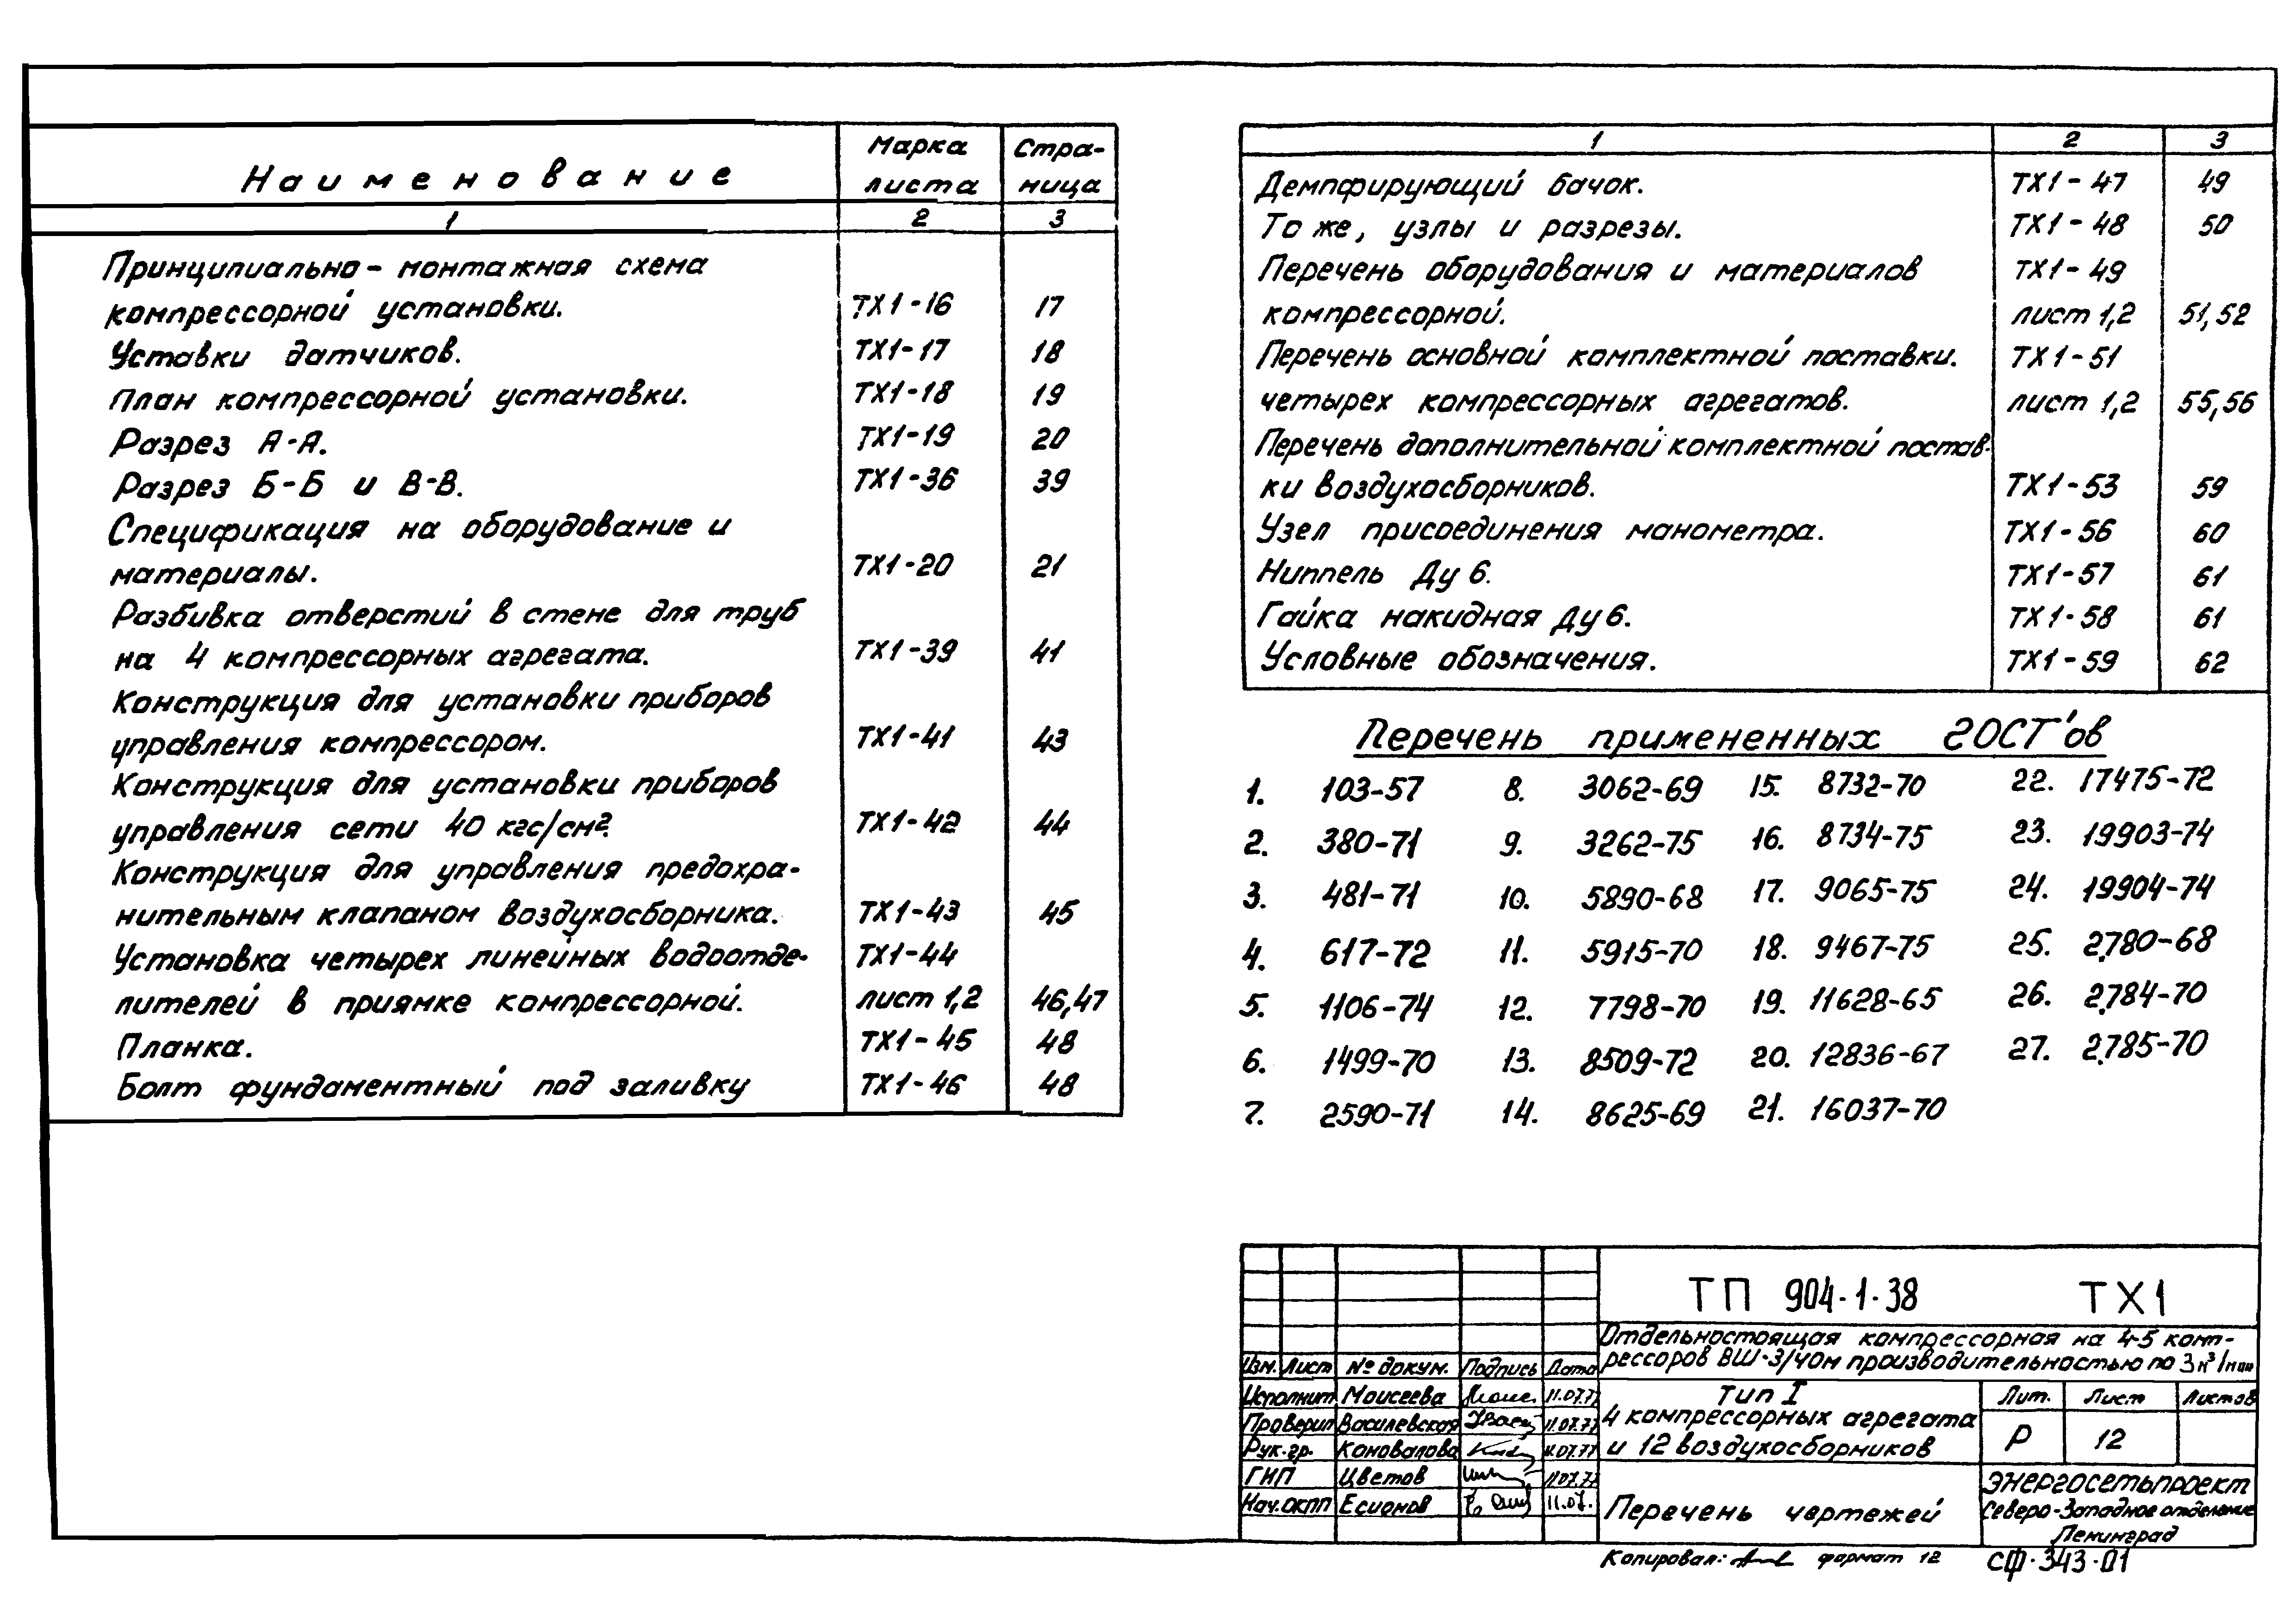 Наименование Марка листа Стра-ница
1 2 3
Принципиально-монтажная схема
компрессорной установки. ТХ1-16 17
Уставки датчиков. ТХ1-17 18
План компрессорной установки. ТХ1-18 19
Разрез А-А. ТХ1-19 20
Разрез Б-Б и В-В. ТХ1-36 39
Спецификация на оборудование и
материалы. ТХ1-20 21
Разбивка отверстий в стене для труб
на 4 компрессорных агрегата. ТХ1-39 41
Конструкция для установки приборов
управления компрессором. ТХ1-41 43
Конструкция для установки приборов
управления сети 40 кгс/см². ТХ1-42 44
Конструкция для управления предохра-
нительным клапаном воздухосборника. ТХ1-43 45
Установка четырех линейных водоотде- ТХ1-44
лителей в приямке компрессорной. лист 1,2 46,47
Планка. ТХ1-45 48
Болт фундаментный под заливку ТХ1-46 48
1 2 3
Демпфирующий бачок. ТХ1-47 49
То же, узлы и разрезы. ТХ1-48 50
Перечень оборудования и материалов ТХ1-49
компрессорной. лист 1,2 51,52
Перечень основной комплектной поставки. ТХ1-51
четырех компрессорных агрегатов. лист 1,2 55,56
Перечень дополнительной комплектной постав-
ки воздухосборников. ТХ1-53 59
Узел присоединения манометра. ТХ1-56 60
Ниппель Ду 6. ТХ1-57 61
Гайка накидная Ду 6. ТХ1-58 61
Условные обозначения. ТХ1-59 62
Перечень примененных ГОСТ'ов
1. 103-57 8. 3062-69 15. 8732-70 22. 17475-72
2. 380-71 9. 3262-75 16. 8734-75 23. 19903-74
3. 481-71 10. 5890-68 17. 9065-75 24. 19904-74
4. 617-72 11. 5915-70 18. 9467-75 25. 2.780-68
5. 1106-74 12. 7798-70 19. 11628-65 26. 2.784-70
6. 1499-70 13. 8509-72 20. 12836-67 27. 2.785-70
7. 2590-71 14. 8625-69 21. 16037-70
ТП 904-1-38 ТХ1
Отдельностоящая компрессорная на 4-5 комп-
рессоров ВШ-3/40м производительностью по 3 м³/мин
Изм. Лист № докум. Подпись Дата
Исполнит Моисеева 11.07.77
Проверил Василевская 11.07.77
Рук. гр. Коновалова 11.07.77
ГИП Цветов 11.07.77
Нач. ОКПП Есионов 11.07.
Тип I
4 компрессорных агрегата
и 12 воздухосборников
Лит. Лист Листов
Р 12
Перечень чертежей
Энергосетьпроект
Северо-Западное отделение
Ленинград
Копировал: формат 12 СФ-343-01